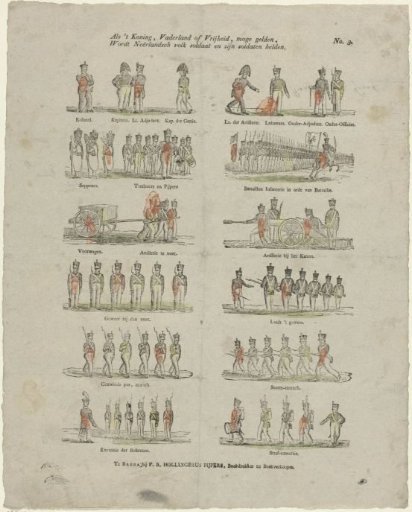 Als 't Koning, Vaderland of Vrijheid, moge gelden,
Wordt Neêrlandsch volk soldaat en zijn soldaten helden.
No. 9.
Kolonel. Kapitein. Lt. Adjudant. Kap. der Genie.
Lt. der Artillerie. Luitenant. Onder-Adjudant. Onder-Officier.
Sappeurs. Tamboers en Pijpers
Bataillon Infanterie in orde van Bataille.
Voorwagen. Artillerie te voet.
Artillerie bij het Kanon.
Geweer bij den voet.
Laadt 't geweer.
Gewonde pas, marsch.
Storm-marsch.
Exercitie der Rekruten.
Straf-exercitie.
Te by F. A. HOLLINGÉRUS PIJPERS, Boekdrukker en Boekverkooper.